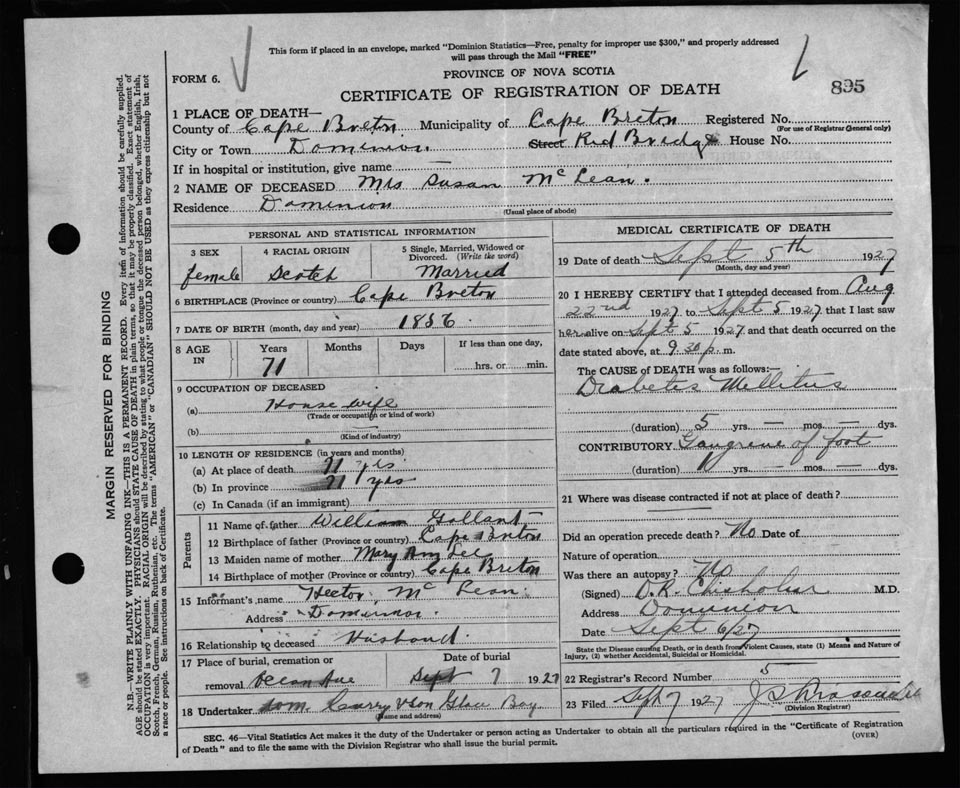 This form if placed in an envelope, marked "Dominion Statistics—Free, penalty for improper use $300," and properly addressed
will pass through the Mail "FREE"
FORM 6.
PROVINCE OF NOVA SCOTIA
CERTIFICATE OF REGISTRATION OF DEATH
895
1 PLACE OF DEATH—
County of Cape Breton Municipality of Cape Breton Registered No.
(For use of Registrar General only)
City or Town Dominion. Street Red Bridge House No.
If in hospital or institution, give name —
2 NAME OF DECEASED Mrs Susan McLean.
Residence Dominion
(Usual place of abode)
PERSONAL AND STATISTICAL INFORMATION
3 SEX 4 RACIAL ORIGIN 5 Single, Married, Widowed or
Divorced. (Write the word)
female Scotch Married
6 BIRTHPLACE (Province or country) Cape Breton
7 DATE OF BIRTH (month, day and year) 1856.
8 AGE IN Years Months Days If less than one day,
71 hrs. or min.
9 OCCUPATION OF DECEASED
(a) House wife
(Trade or occupation or kind of work)
(b)
(Kind of industry)
10 LENGTH OF RESIDENCE (in years and months)
(a) At place of death 71 yrs
(b) In province 71 yrs
(c) In Canada (if an immigrant)
Parents
11 Name of father William Gallant
12 Birthplace of father (Province or country) Cape Breton
13 Maiden name of mother Mary Ann Lee
14 Birthplace of mother (Province or country) Cape Breton
15 Informant's name Hector McLean.
Address Dominion.
16 Relationship to deceased Husband.
17 Place of burial, cremation or Date of burial
removal Ocean Ave Sept 7 1927
18 Undertaker Curry & Son Glace Bay
(Name and address)
MEDICAL CERTIFICATE OF DEATH
19 Date of death Sept 5th 1927
(Month, day and year)
20 I HEREBY CERTIFY that I attended deceased from Aug
22nd 1927 to Sept 5 1927 that I last saw
her alive on Sept 5 1927 and that death occurred on the
date stated above, at 9.30 p. m.
The CAUSE of DEATH was as follows:—
Diabetes Mellitus
(duration) 5 yrs. — mos. — dys.
CONTRIBUTORY Gangrene of foot
(duration) yrs. — mos. — dys.
21 Where was disease contracted if not at place of death?
Did an operation precede death? No Date of
Nature of operation
Was there an autopsy? No
(Signed) D.K. Chisholm M.D.
Address Dominion
Date Sept 6/27
State the Disease causing Death, or in death from Violent Causes, state (1) Means and Nature of
Injury, (2) whether Accidental, Suicidal or Homicidal.
22 Registrar's Record Number 5
23 Filed Sept 7 1927
(Division Registrar)
SEC. 46—Vital Statistics Act makes it the duty of the Undertaker or person acting as Undertaker to obtain all the particulars required in the "Certificate of Registration
of Death" and to file the same with the Division Registrar who shall issue the burial permit.
(OVER)
MARGIN RESERVED FOR BINDING
N.B.—WRITE PLAINLY WITH UNFADING INK—THIS IS A PERMANENT RECORD. Every item of information should be carefully supplied.
AGE should be stated EXACTLY. PHYSICIANS should STATE CAUSE OF DEATH in plain terms, so that it may be properly classified. Exact statement of
OCCUPATION is very important. RACIAL ORIGIN will be described by stating to what people or tongue the deceased person belonged, whether English, Irish,
Scotch, French, German, Russian, Ruthenian, etc. The terms "AMERICAN" or "CANADIAN" SHOULD NOT BE USED as they express citizenship but not
a race or people. See instructions on back of Certificate.